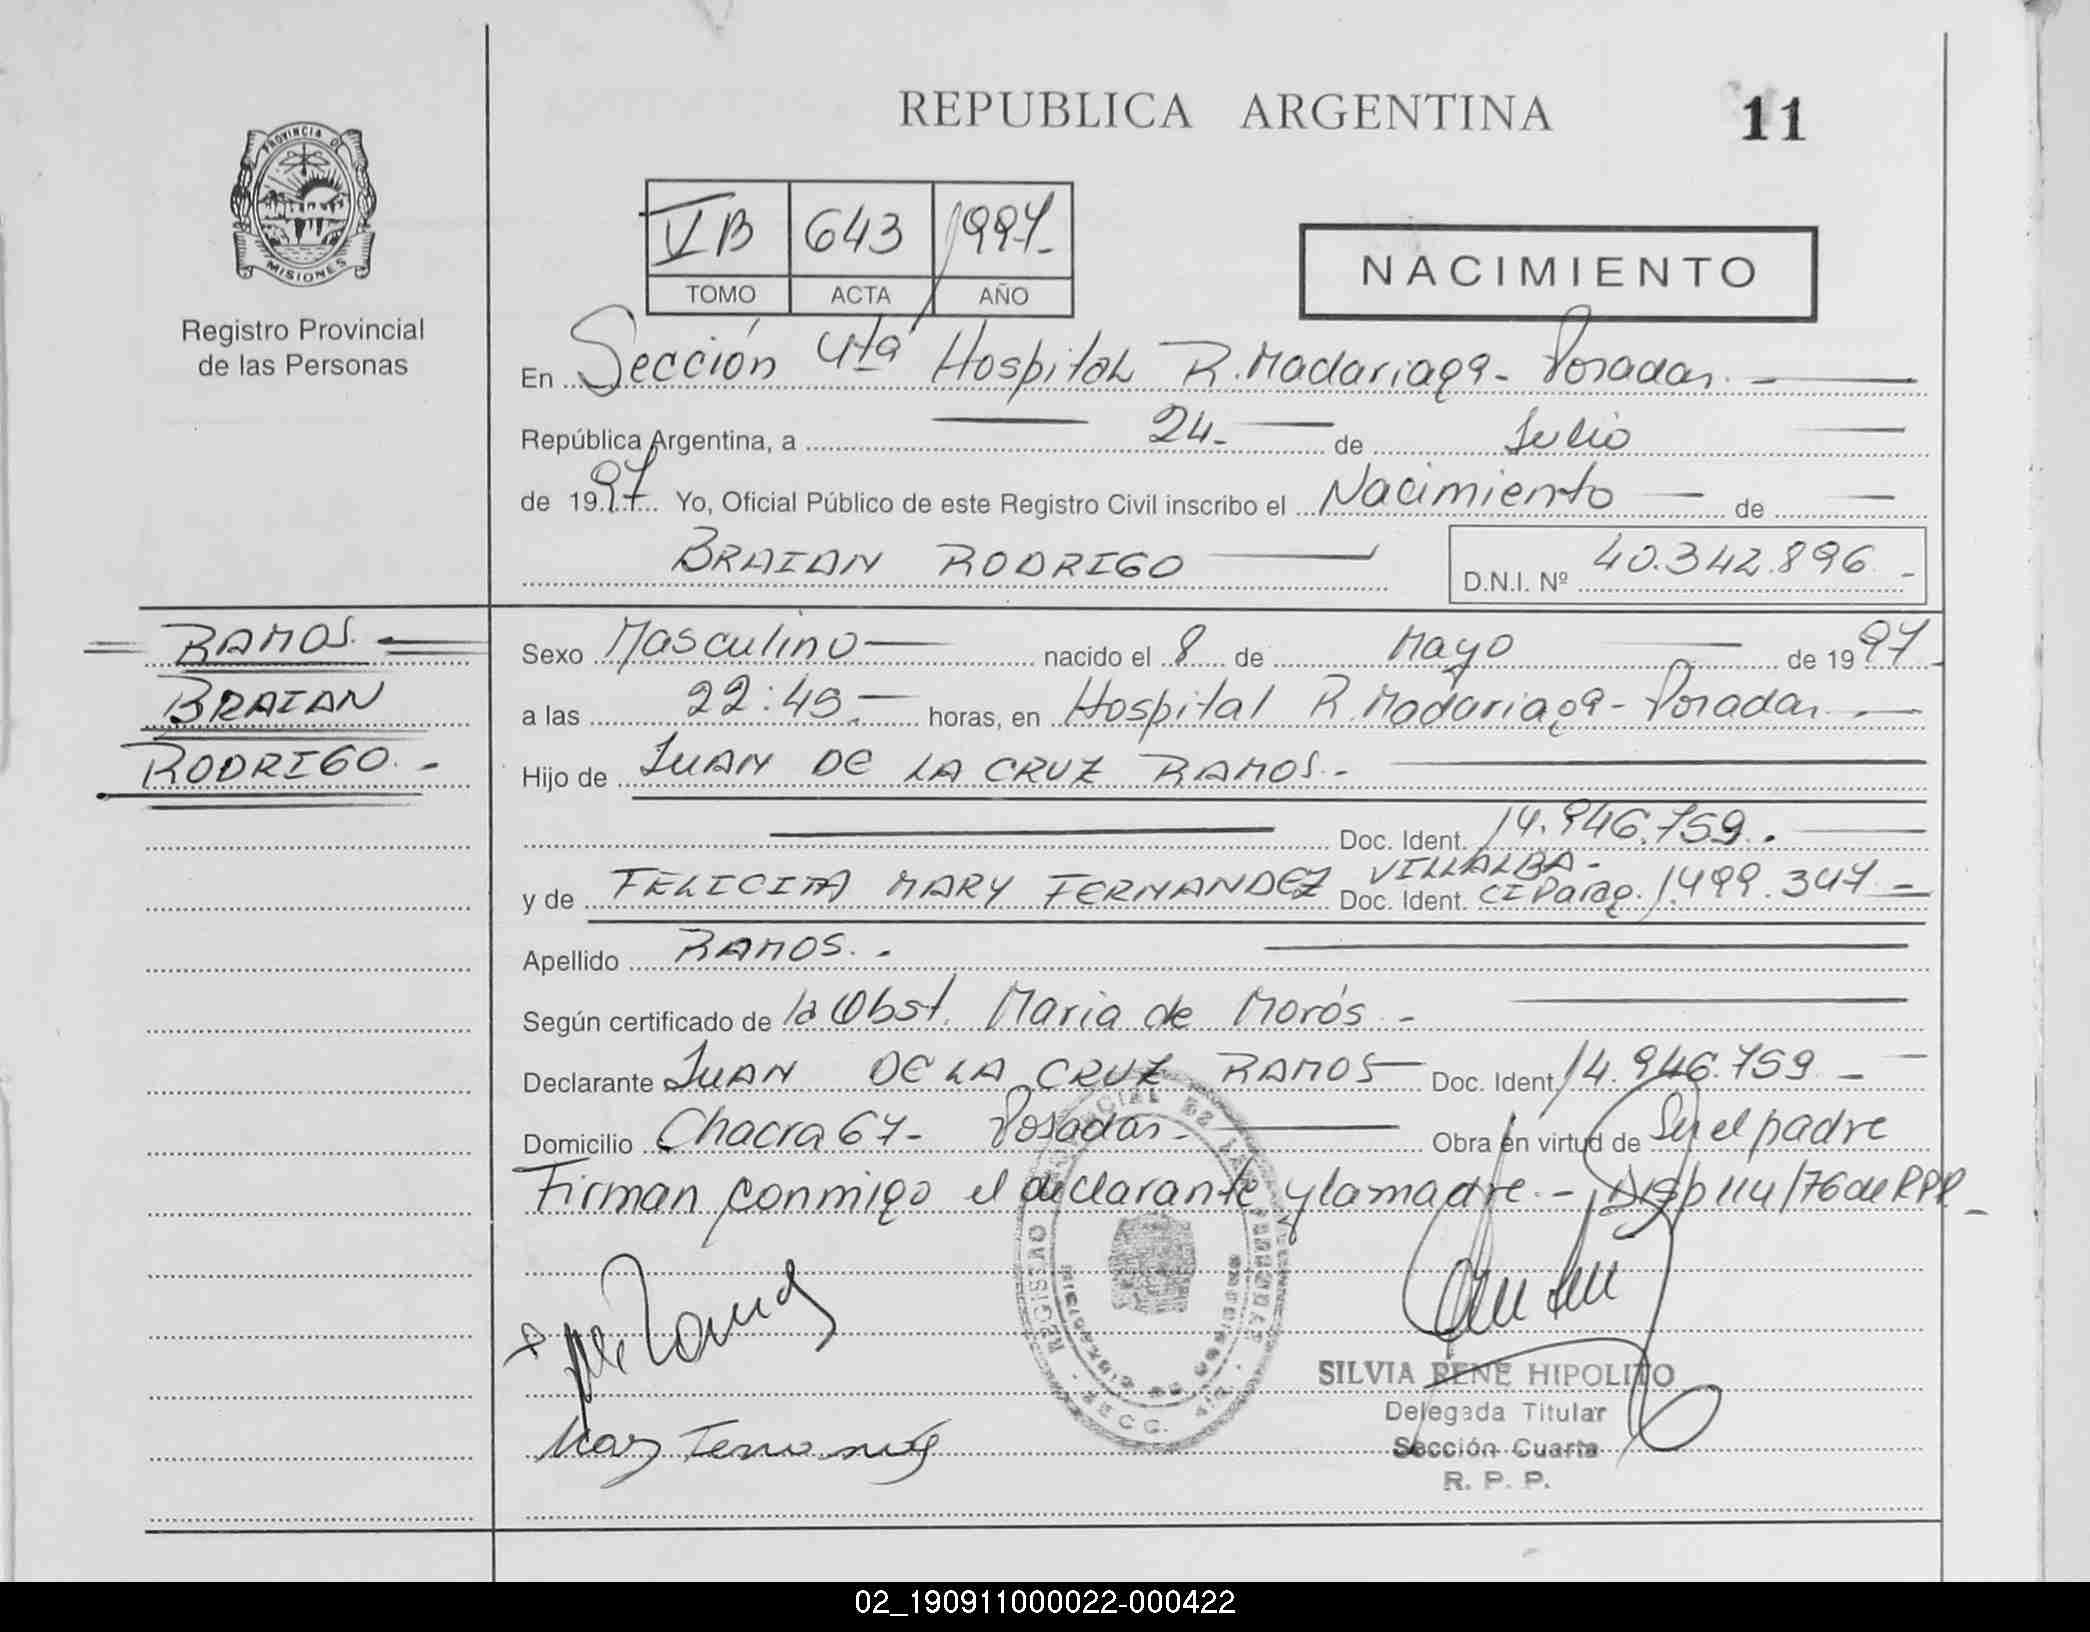 REPUBLICA ARGENTINA 11
PROVINCIA D
MISIONES
Registro Provincial
de las Personas
VB 643 1997-
TOMO ACTA AÑO
NACIMIENTO
En Sección 4ta Hospital R. Madariaga - Posadas. -
República Argentina, a 24- de Julio
de 1997 Yo, Oficial Público de este Registro Civil inscribo el Nacimiento de
BRAIAN RODRIGO
D.N.I. Nº 40.342.896 -
RAMOS.
BRAIAN
RODRIGO. -
Sexo Masculino nacido el 8 de Mayo de 1997
a las 22:45. horas, en Hospital R. Madariaga - Posadas. -
Hijo de JUAN DE LA CRUZ RAMOS. -
Doc. Ident. 14.946.759.
y de FELICITA MARY FERNANDEZ VILLALBA - Doc. Ident. CI Parag. 1.499.347 -
Apellido RAMOS. -
Según certificado de la Obst. Maria de Morós -
Declarante JUAN DE LA CRUZ RAMOS Doc. Ident 14.946.759 -
Domicilio Chacra 67- Posadas - Obra en virtud de Ser el padre
Firman conmigo el declarante y la madre. - Disp 114/76 de RPP -
SILVIA RENE HIPOLITO
Delegada Titular
Sección Cuarta
R. P. P.
02_190911000022-000422